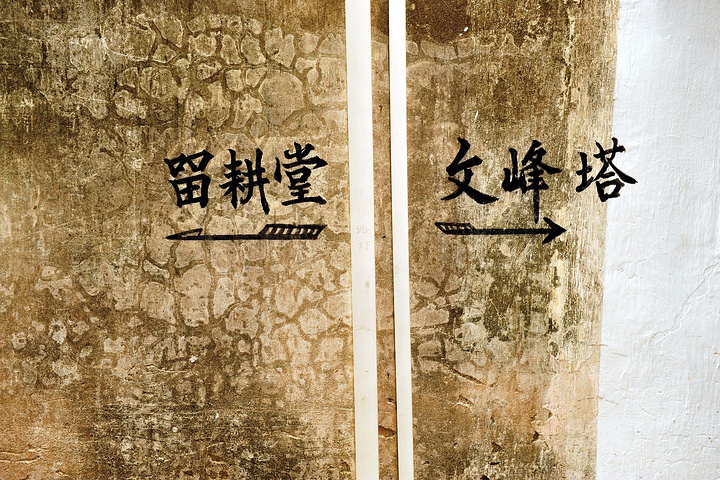 留耕堂
文峰塔